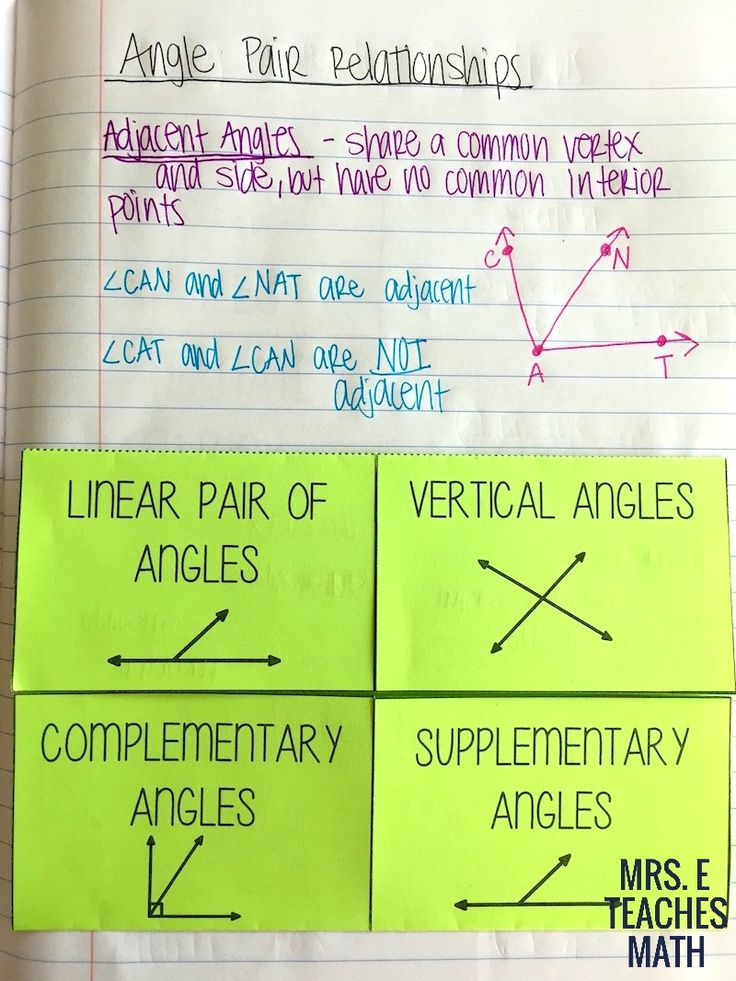 Angle Pair Relationships
Adjacent Angles - share a common vertex
and side, but have no common interior
points
C N
∠CAN and ∠NAT are adjacent
∠CAT and ∠CAN are NOT
adjacent
A T
LINEAR PAIR OF
ANGLES
VERTICAL ANGLES
COMPLEMENTARY
ANGLES
SUPPLEMENTARY
ANGLES
MRS. E
TEACHES
MATH